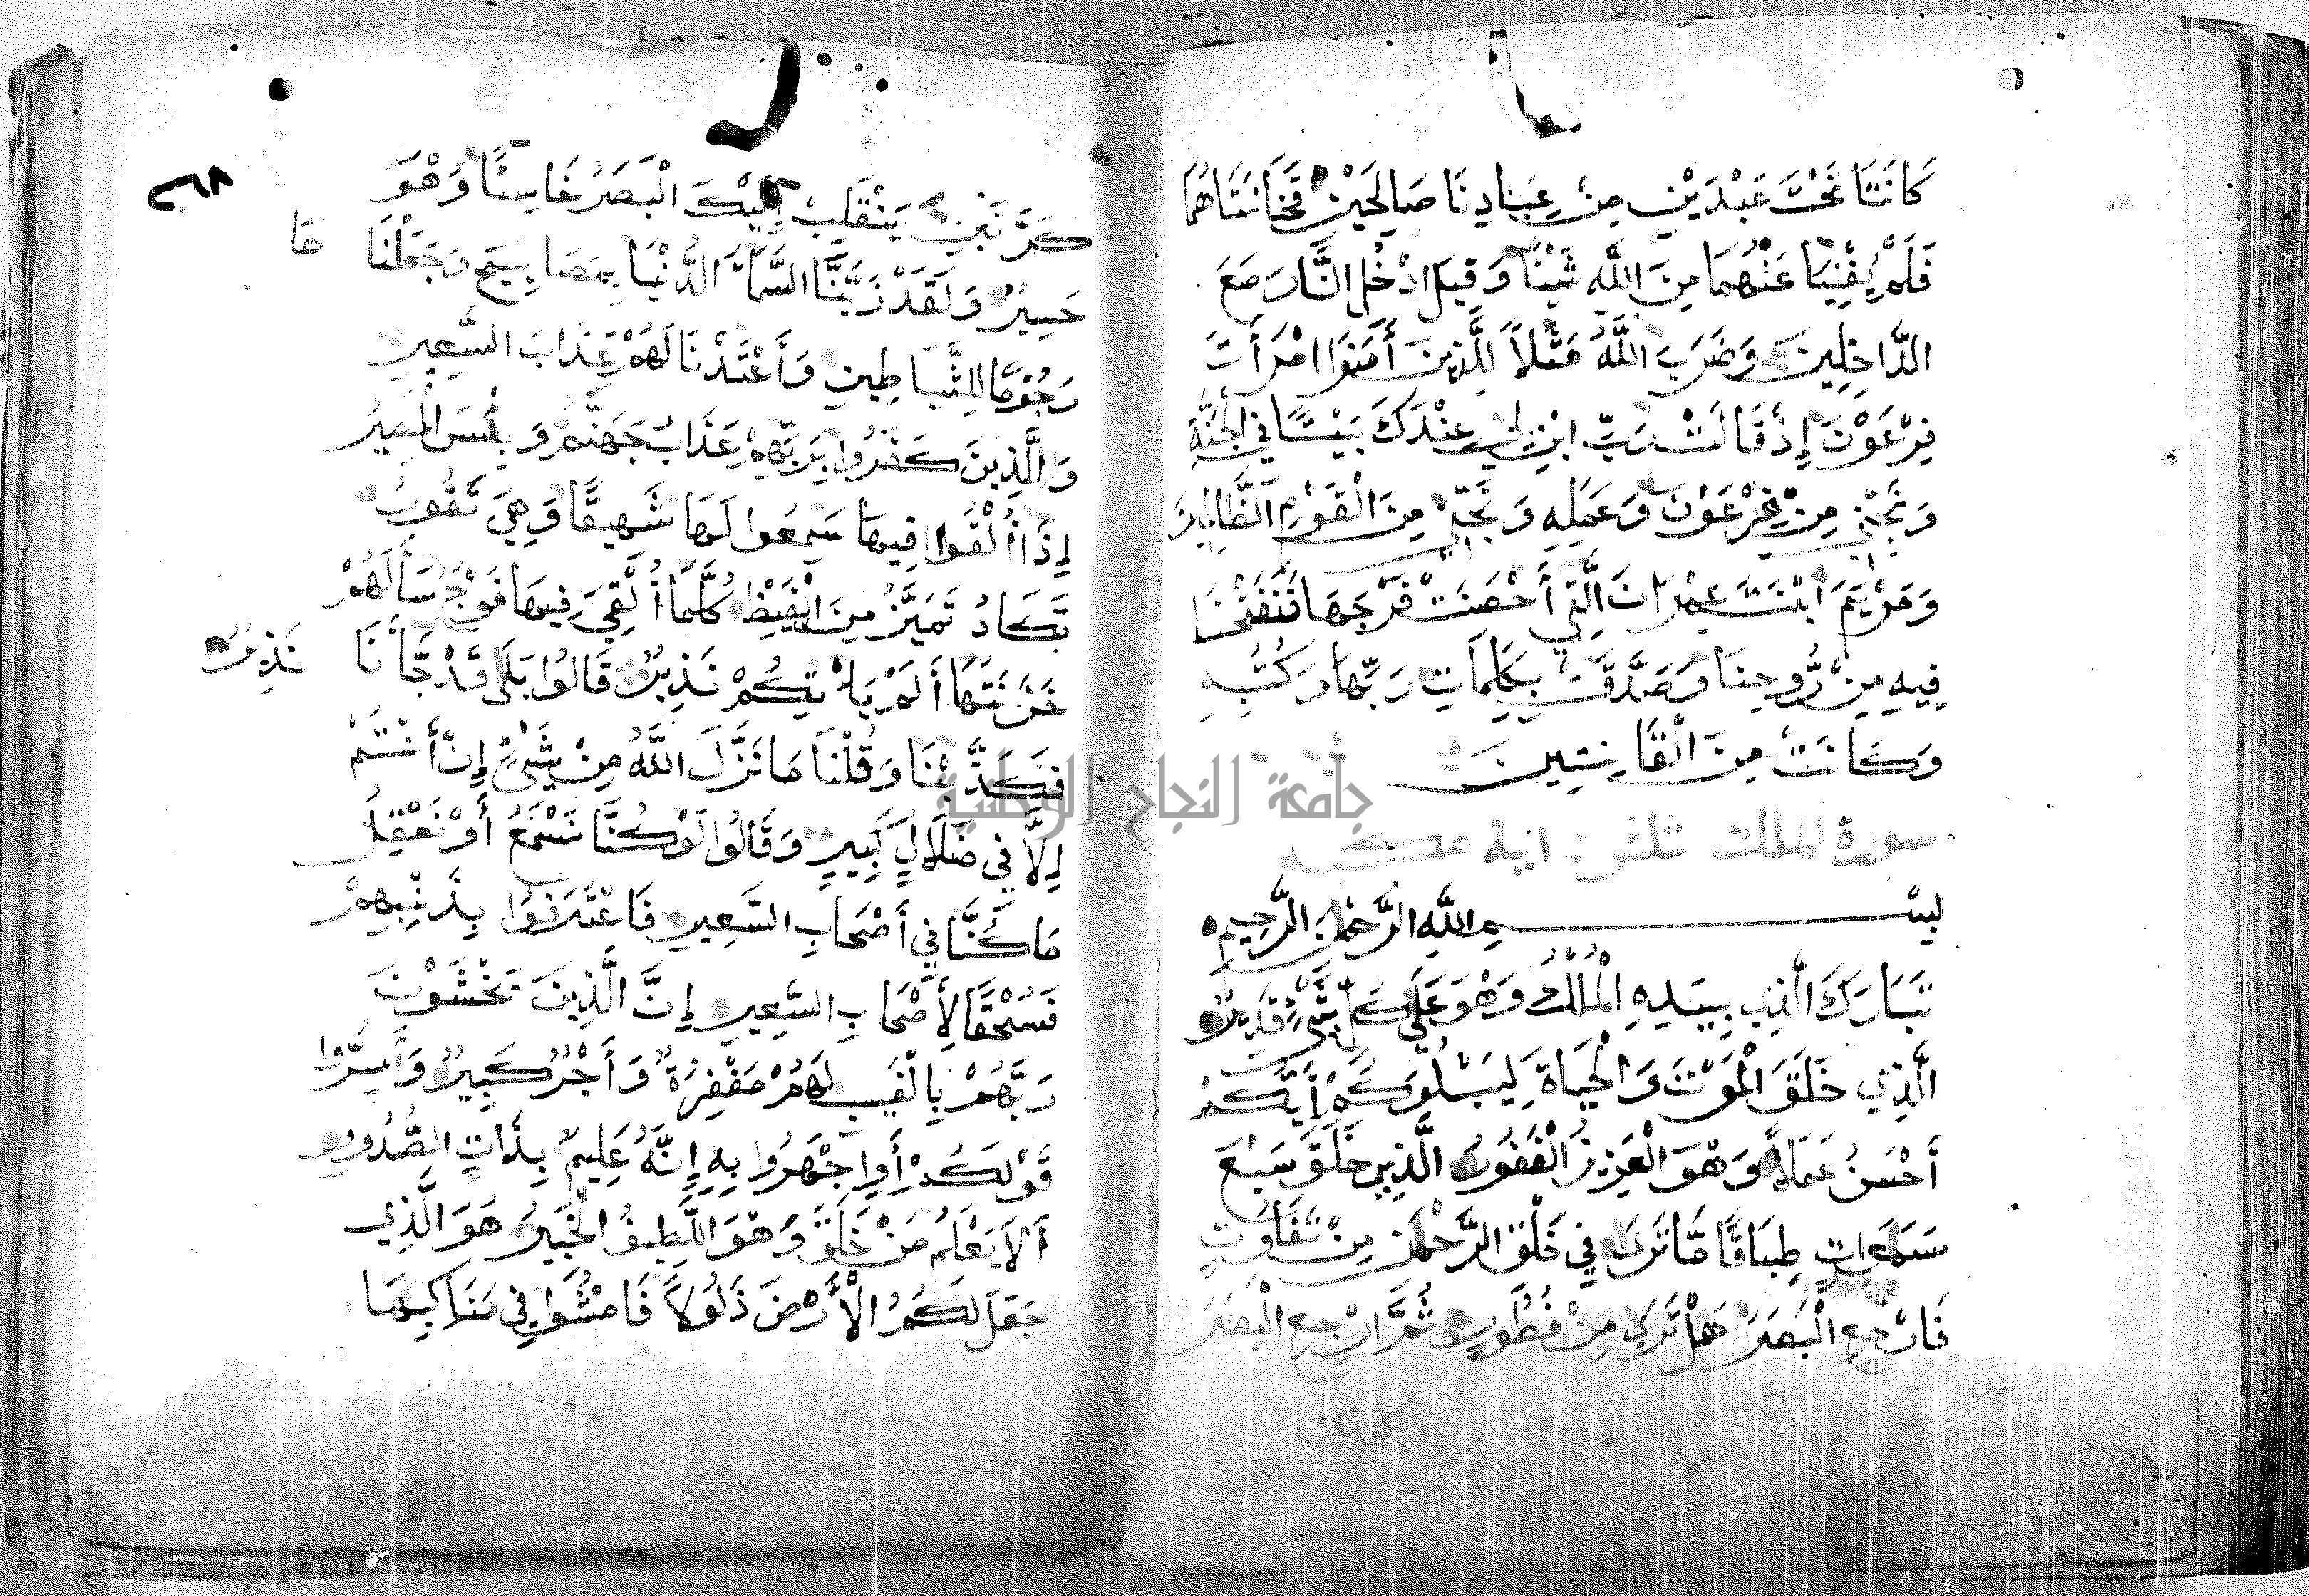 كَانَتَا تَحْتَ عَبْدَيْنِ مِنْ عِبَادِنَا صَالِحَيْنِ فَخَانَتَاهُمَا
فَلَمْ يُغْنِيَا عَنْهُمَا مِنَ اللَّهِ شَيْئًا وَقِيلَ ادْخُلَا النَّارَ مَعَ
الدَّاخِلِينَ وَضَرَبَ اللَّهُ مَثَلاً لِلَّذِينَ أَمَنُوا امْرَأَتَ
فِرْعَوْنَ إِذْ قَالَتْ رَبِّ ابْنِ لِي عِنْدَكَ بَيْتًا فِي الْجَنَّةِ
وَنَجِّنِي مِنْ فِرْعَوْنَ وَعَمَلِهِ وَنَجِّنِي مِنَ الْقَوْمِ الظَّالِمِينَ
وَمَرْيَمَ ابْنَتَ عِمْرَانَ الَّتِي أَحْصَنَتْ فَرْجَهَا فَنَفَخْنَا
فِيهِ مِنْ رُّوحِنَا وَصَدَّقَتْ بِكَلِمَاتِ رَبِّهَا وَكُتُبِهِ
وَكَانَتْ مِنَ الْقَانِتِينَ
سورة الملك ثلثون اية مكية
بِسْمِ اللَّهِ الرَّحْمَنِ الرَّحِيمِ
تَبَارَكَ الَّذِي بِيَدِهِ الْمُلْكُ وَهْوَ عَلَى كُلِّ شَيْءٍ قَدِيرٌ
الَّذِي خَلَقَ الْمَوْتَ وَالْحَيَاةَ لِيَبْلُوَكُمْ أَيُّكُمْ
أَحْسَنُ عَمَلاً وَهْوَ الْعَزِيزُ الْغَفُورُ الَّذِي خَلَقَ سَبْعَ
سَمَوَاتٍ طِبَاقًا مَّا تَرَى فِي خَلْقِ الرَّحْمَنِ مِنْ تَفَاوُتٍ
فَارْجِعِ الْبَصَرَ هَلْ تَرَى مِنْ فُطُورٍ ثُمَّ ارْجِعِ الْبَصَرَ
كرتين
٢٦٨
كَرَّتَيْنِ يَنْقَلِبْ إِلَيْكَ الْبَصَرُ خَاسِئًا وَهْوَ
حَسِيرٌ وَلَقَدْ زَيَّنَّا السَّمَاءَ الدُّنْيَا بِمَصَابِيحَ وَجَعَلْنَا هَا
رُجُومًا لِلشَّيَاطِينِ وَأَعْتَدْنَا لَهُمْ عَذَابَ السَّعِيرِ
وَلِلَّذِينَ كَفَرُوا بِرَبِّهِمْ عَذَابُ جَهَنَّمَ وَبِئْسَ الْمَصِيرُ
إِذَا أُلْقُوا فِيهَا سَمِعُوا لَهَا شَهِيقًا وَهِيَ تَفُورُ
تَكَادُ تَمَيَّزُ مِنَ الْغَيْظِ كُلَّمَا أُلْقِيَ فِيهَا فَوْجٌ سَأَلَهُمْ
خَزَنَتُهَا أَلَمْ يَأْتِكُمْ نَذِيرٌ قَالُوا بَلَى قَدْ جَاءَنَا نَذِيرٌ
فَكَذَّبْنَا وَقُلْنَا مَا نَزَّلَ اللَّهُ مِنْ شَيْءٍ إِنْ أَنْتُمْ
إِلاَّ فِي ضَلَالٍ كَبِيرٍ وَقَالُوا لَوْ كُنَّا نَسْمَعُ أَوْ نَعْقِلُ
مَا كُنَّا فِي أَصْحَابِ السَّعِيرِ فَاعْتَرَفُوا بِذَنْبِهِمْ
فَسُحْقًا لِأَصْحَابِ السَّعِيرِ إِنَّ الَّذِينَ يَخْشَوْنَ
رَبَّهُمْ بِالْغَيْبِ لَهُمْ مَغْفِرَةٌ وَأَجْرٌ كَبِيرٌ وَأَسِرُّوا
قَوْلَكُمْ أَوِ اجْهَرُوا بِهِ إِنَّهُ عَلِيمٌ بِذَاتِ الصُّدُورِ
أَلاَ يَعْلَمُ مَنْ خَلَقَ وَهْوَ اللَّطِيفُ الْخَبِيرُ هُوَ الَّذِي
جَعَلَ لَكُمُ الْأَرْضَ ذَلُولاً فَامْشُوا فِي مَنَاكِبِهَا
جامعة النجاح الوطنية